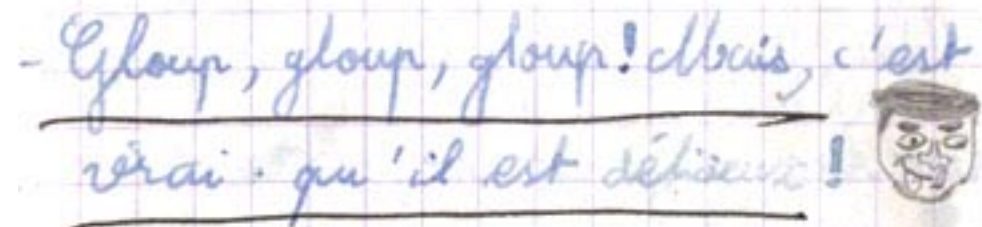 - Gloup, gloup, gloup! Mais, c'est
vrai qu'il est délicieux !